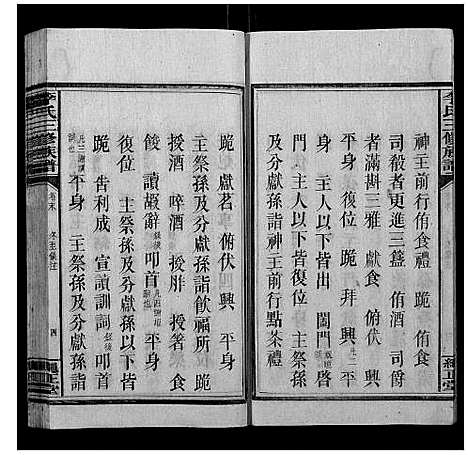 李氏三修族譜
神主前行侑食禮 跪 侑食
司殽者更進三盞 侑酒 司爵
者滿斟三雅 獻食 俯伏 興
平身 復位 跪 拜 興 平
身 主人以下皆出 闔門 啓
門 主人以下皆復位 主祭孫
及分獻孫詣神主前行點茶禮
跪 獻茗 俯伏 興 平身
主祭孫及分獻孫詣飲福所 跪
授酒 啐酒 授胙 授箸 食
餕 讀嘏辭 叩首 平身
復位 主祭孫及分獻孫以下皆
跪 告利成 宣讀訓詞 叩首
平身 主祭孫及分獻孫
李氏三修族譜
卷末
冬至儀注
四